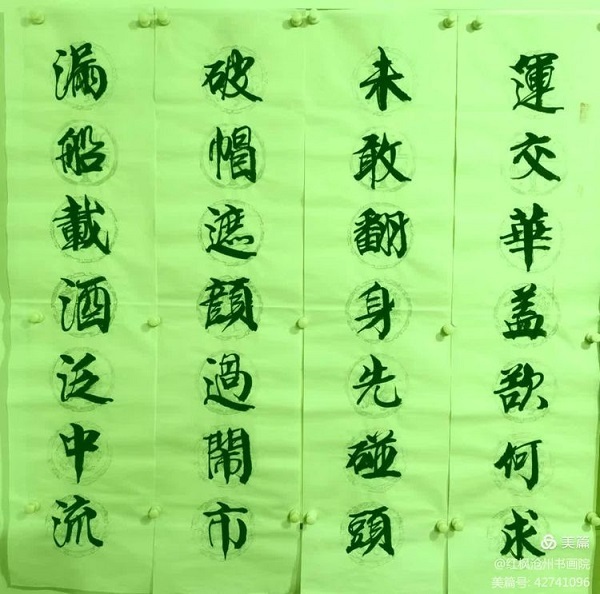 運交華蓋欲何求
未敢翻身先碰頭
破帽遮顔過鬧市
漏船載酒泛中流
美篇
@红枫沧州书画院
美篇号: 42741096